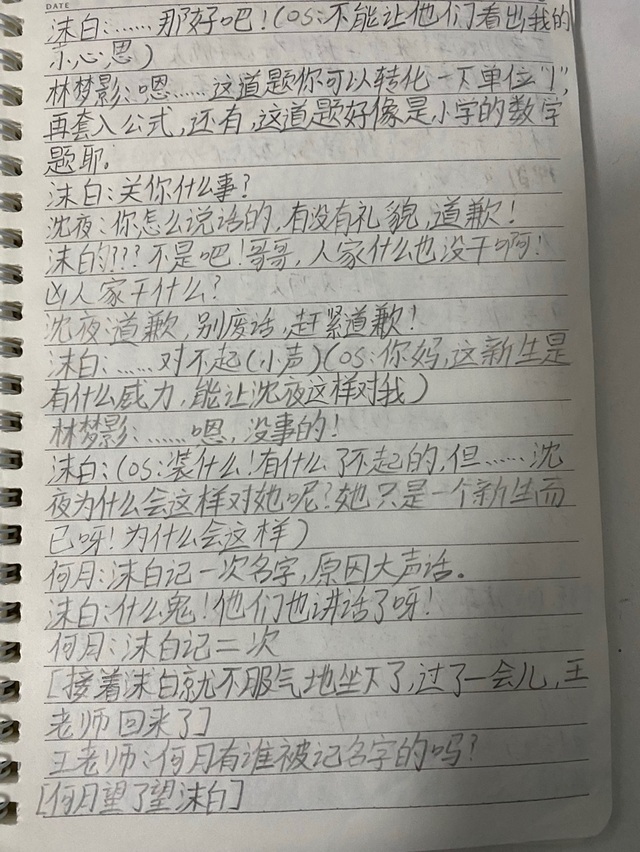 DATE
沫白:……那好吧!(OS:不能让他们看出我的
小心思)
林梦影:嗯……这道题你可以转化一下单位"1",
再套入公式,还有,这道题好像是小学的数学
题耶。
沫白:关你什么事?
沈夜:你怎么说话的,有没有礼貌,道歉!
沫的???不是吧!哥哥,人家什么也没干啊!
凶人家干什么?
沈夜:道歉,别废话,赶紧道歉!
沫白:……对不起(小声)(OS:你妈,这新生是
有什么威力,能让沈夜这样对我)
林梦影:……嗯,没事的!
沫白:(OS:装什么!有什么了不起的,但……沈
夜为什么会这样对她呢?她只是一个新生而
已呀!为什么会这样)
何月:沫白记一次名字,原因大声话。
沫白:什么鬼!他们也讲话了呀!
何月:沫白记二次
[接着沫白就不服气地坐下了,过了一会儿,王
老师回来了]
王老师:何月有谁被记名字的吗?
[何月望了望沫白]